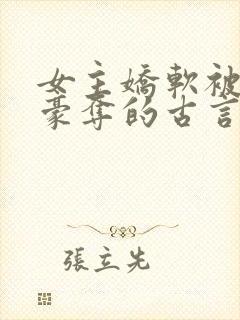 女主嬌軟被
豪奪的古言
張立先